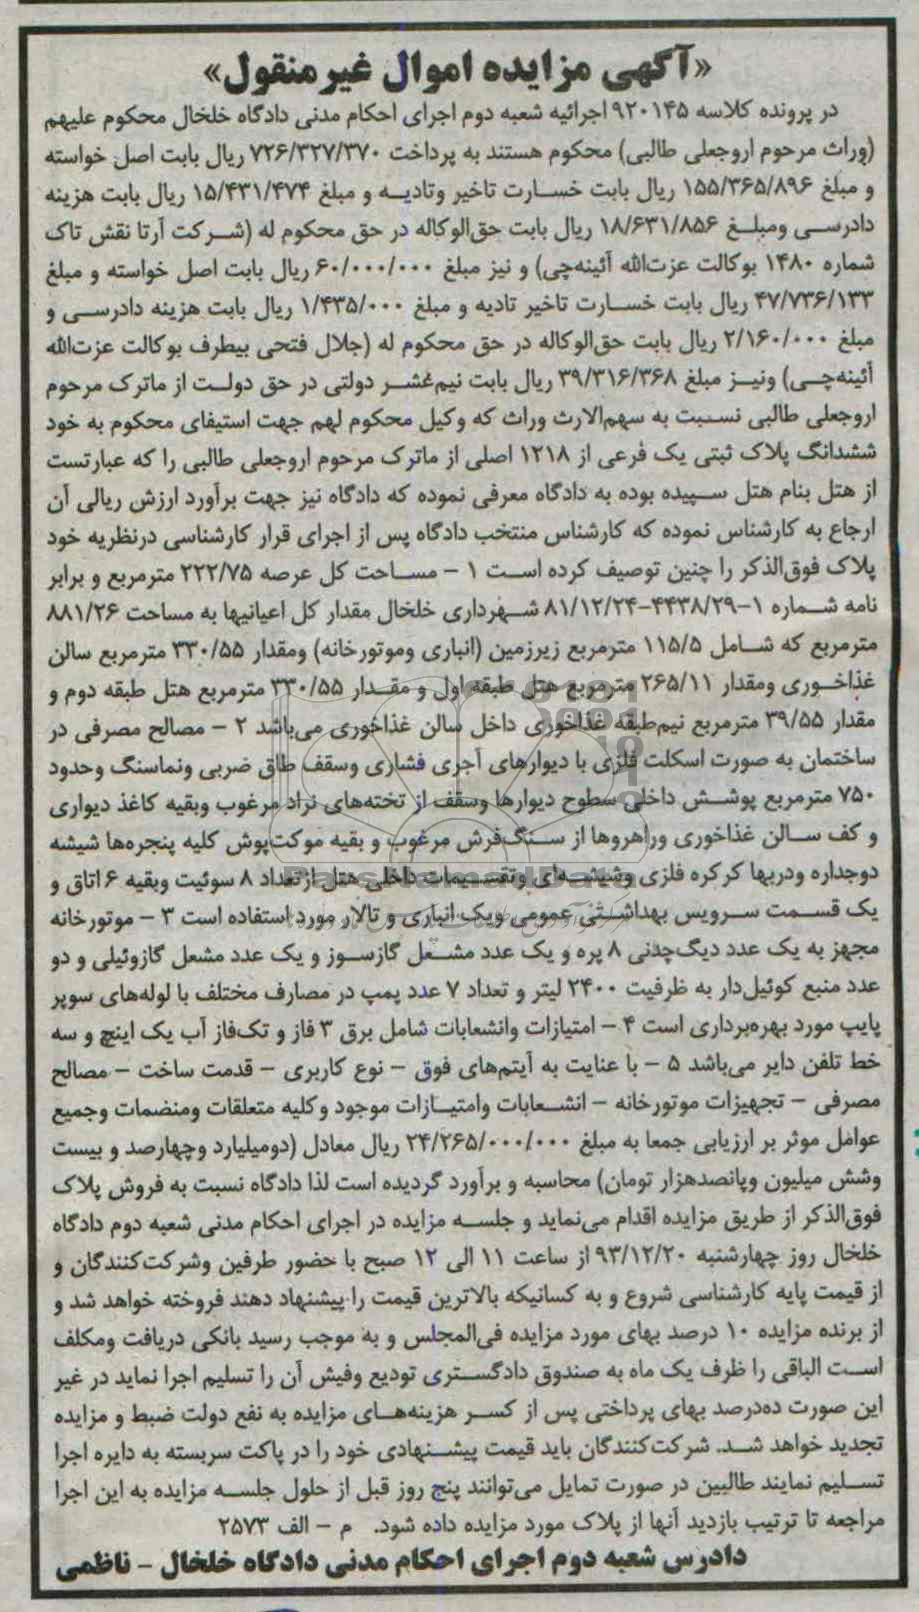 «آگهی مزایده اموال غیرمنقول»
در پرونده کلاسه ۹۲۰۱۴۵ اجرائیه شعبه دوم اجرای احکام مدنی دادگاه خلخال محکوم علیهم
(وراث مرحوم اروجعلی طالبی) محکوم هستند به پرداخت ۷۲۶/۳۲۷/۳۷۰ ریال بابت اصل خواسته
و مبلغ ۱۵۵/۳۶۵/۸۹۶ ریال بابت خسارت تاخیر وتادیه و مبلغ ۱۵/۴۳۱/۴۷۴ ریال بابت هزینه
دادرسی ومبلغ ۱۸/۶۳۱/۸۵۶ ریال بابت حق‌الوکاله در حق محکوم له (شرکت آرتا نقش تاک
شماره ۱۴۸۰ بوکالت عزت‌الله آئینه‌چی) و نیز مبلغ ۶۰/۰۰۰/۰۰۰ ریال بابت اصل خواسته و مبلغ
۴۷/۷۳۶/۱۳۳ ریال بابت خسارت تاخیر تادیه و مبلغ ۱/۴۳۵/۰۰۰ ریال بابت هزینه دادرسی و
مبلغ ۲/۱۶۰/۰۰۰ ریال بابت حق‌الوکاله در حق محکوم له (جلال فتحی بیطرف بوکالت عزت‌الله
آئینه‌چی) ونیز مبلغ ۳۹/۳۱۶/۳۶۸ ریال بابت نیم‌عشر دولتی در حق دولت از ماترک مرحوم
اروجعلی طالبی نسبت به سهم‌الارث وراث که وکیل محکوم لهم جهت استیفای محکوم به خود
ششدانگ پلاک ثبتی یک فرعی از ۱۲۱۸ اصلی از ماترک مرحوم اروجعلی طالبی را که عبارتست
از هتل بنام هتل سپیده بوده به دادگاه معرفی نموده که دادگاه نیز جهت برآورد ارزش ریالی آن
ارجاع به کارشناس نموده که کارشناس منتخب دادگاه پس از اجرای قرار کارشناسی درنظریه خود
پلاک فوق‌الذکر را چنین توصیف کرده است ۱ – مساحت کل عرصه ۲۲۲/۷۵ مترمربع و برابر
نامه شماره ۱-۴۴۳۸/۲۹-۸۱/۱۲/۲۴ شهرداری خلخال مقدار کل اعیانیها به مساحت ۸۸۱/۲۶
مترمربع که شامل ۱۱۵/۵ مترمربع زیرزمین (انباری وموتورخانه) ومقدار ۳۳۰/۵۵ مترمربع سالن
غذاخوری ومقدار ۲۶۵/۱۱ مترمربع هتل طبقه اول و مقدار ۳۳۰/۵۵ مترمربع هتل طبقه دوم و
مقدار ۳۹/۵۵ مترمربع نیم‌طبقه غذاخوری داخل سالن غذاخوری می‌باشد ۲ – مصالح مصرفی در
ساختمان به صورت اسکلت فلزی با دیوارهای آجری فشاری وسقف طاق ضربی ونماسنگ وحدود
۷۵۰ مترمربع پوشش داخلی سطوح دیوارها وسقف از تخته‌های نراد مرغوب وبقیه کاغذ دیواری
و کف سالن غذاخوری وراهروها از سنگ‌فرش مرغوب و بقیه موکت‌پوش کلیه پنجره‌ها شیشه
دوجداره ودربها کرکره فلزی وشیشه‌ای وتقسیمات داخلی هتل ازتعداد ۸ سوئیت وبقیه ۶ اتاق و
یک قسمت سرویس بهداشتی عمومی ویک انباری و تالار مورد استفاده است ۳ – موتورخانه
مجهز به یک عدد دیگ‌چدنی ۸ پره و یک عدد مشعل گازسوز و یک عدد مشعل گازوئیلی و دو
عدد منبع کوئیل‌دار به ظرفیت ۲۴۰۰ لیتر و تعداد ۷ عدد پمپ در مصارف مختلف با لوله‌های سوپر
پایپ مورد بهره‌برداری است ۴ – امتیازات وانشعابات شامل برق ۳ فاز و تک‌فاز آب یک اینچ و سه
خط تلفن دایر می‌باشد ۵ – با عنایت به آیتم‌های فوق – نوع کاربری – قدمت ساخت – مصالح
مصرفی – تجهیزات موتورخانه – انشعابات وامتیازات موجود وکلیه متعلقات ومنضمات وجمیع
عوامل موثر بر ارزیابی جمعا به مبلغ ۲۴/۲۶۵/۰۰۰/۰۰۰ ریال معادل (دومیلیارد وچهارصد و بیست
وشش میلیون وپانصدهزار تومان) محاسبه و برآورد گردیده است لذا دادگاه نسبت به فروش پلاک
فوق‌الذکر از طریق مزایده اقدام می‌نماید و جلسه مزایده در اجرای احکام مدنی شعبه دوم دادگاه
خلخال روز چهارشنبه ۹۳/۱۲/۲۰ از ساعت ۱۱ الی ۱۲ صبح با حضور طرفین وشرکت‌کنندگان و
از قیمت پایه کارشناسی شروع و به کسانیکه بالاترین قیمت را پیشنهاد دهند فروخته خواهد شد و
از برنده مزایده ۱۰ درصد بهای مورد مزایده فی‌المجلس و به موجب رسید بانکی دریافت ومکلف
است الباقی را ظرف یک ماه به صندوق دادگستری تودیع وفیش آن را تسلیم اجرا نماید در غیر
این صورت ده‌درصد بهای پرداختی پس از کسر هزینه‌های مزایده به نفع دولت ضبط و مزایده
تجدید خواهد شد. شرکت‌کنندگان باید قیمت پیشنهادی خود را در پاکت سربسته به دایره اجرا
تسلیم نمایند طالبین در صورت تمایل می‌توانند پنج روز قبل از حلول جلسه مزایده به این اجرا
مراجعه تا ترتیب بازدید آنها از پلاک مورد مزایده داده شود. م – الف ۲۵۷۳
دادرس شعبه دوم اجرای احکام مدنی دادگاه خلخال – ناظمی